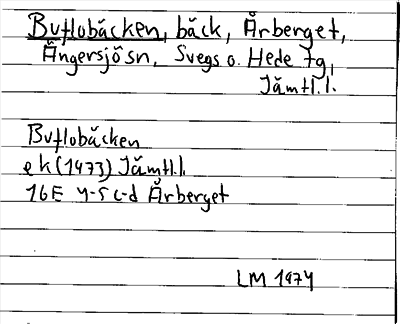 Buflobäcken, bäck, Årberget,
Ängersjö sn, Svegs o. Hede tg,
Jämtl.l.
Buflobäcken
ek (1973) Jämtl.l.
16E 4-5 c-d Årberget
LM 1974